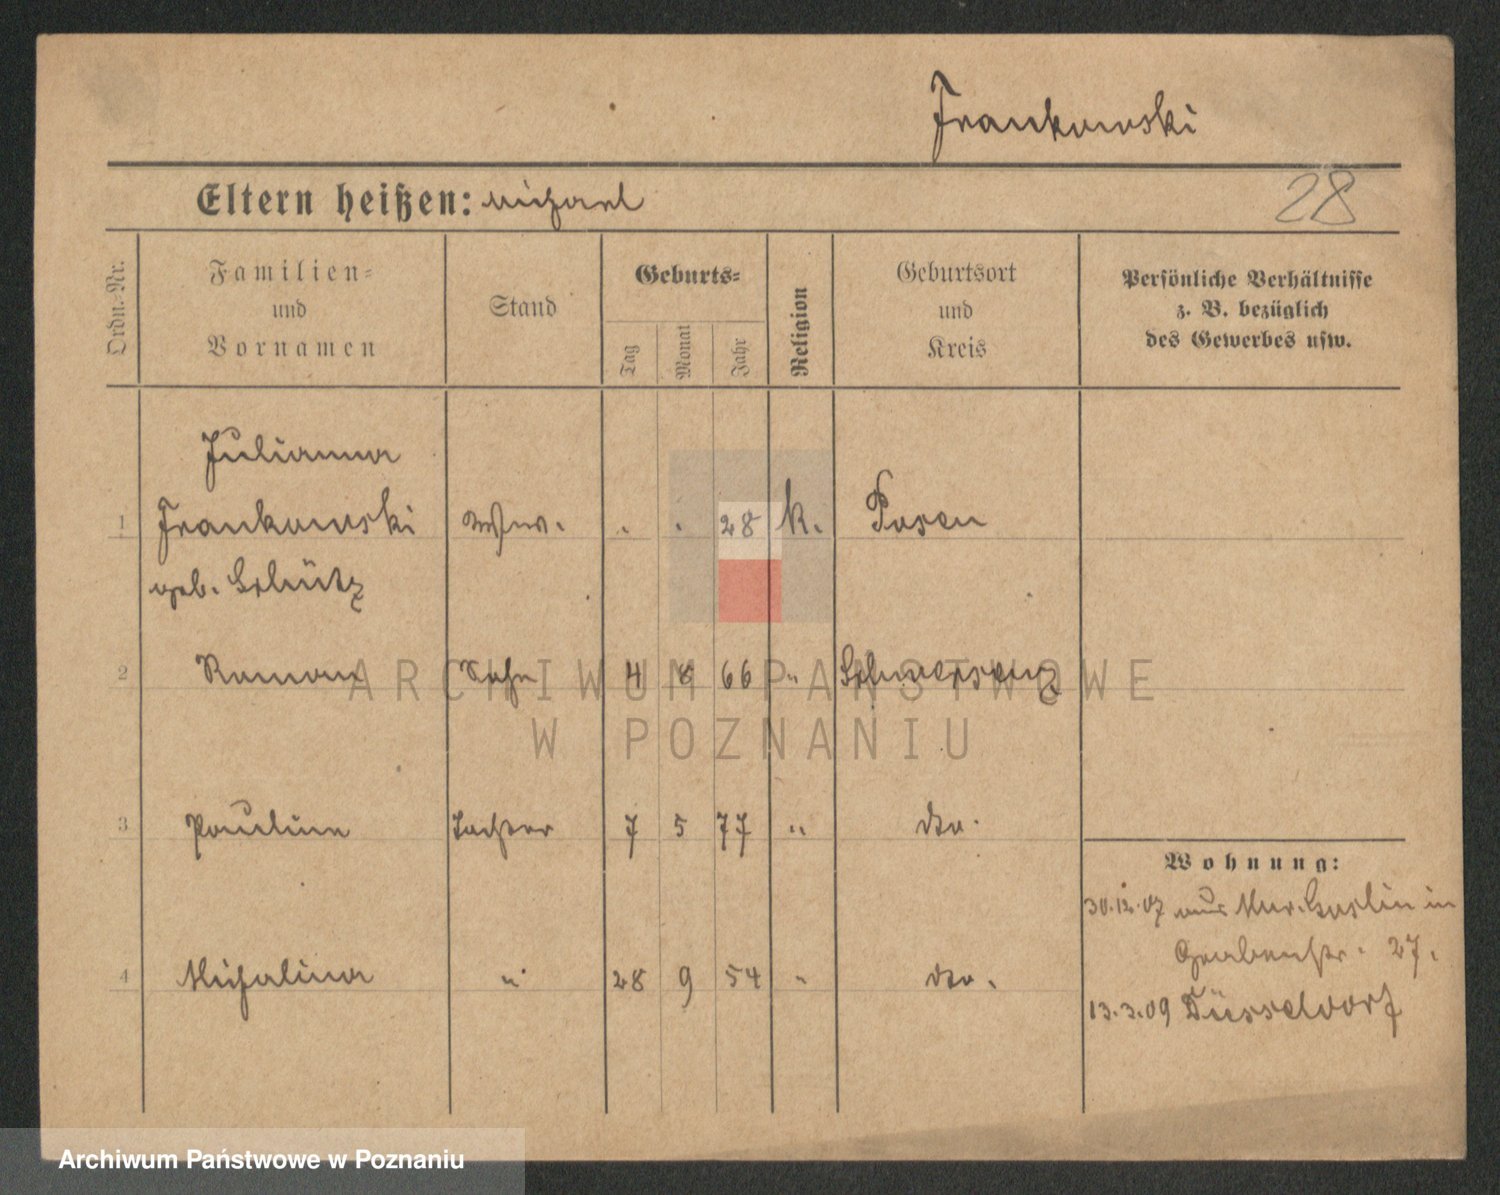 Frankowski
Eltern heißen: Michael
28
Ordn.-Nr.
Familien-
und
Vornamen
Stand
Geburts-
Tag
Monat
Jahr
Religion
Geburtsort
und
Kreis
Persönliche Verhältnisse
z. B. bezüglich
des Gewerbes usw.
Julianna
1 Frankowski Wwe. . . 28 k. Posen
geb. Schütz
2 Roman Sohn 4 8 66 " Schwersenz
3 Pauline Tochter 7 5 77 " dto.
4 Michalina " 28 9 54 " dto.
Wohnung:
30.12.07 aus Mur. Goslin in
Grabenstr. 27.
13.3.09 Düsseldorf
ARCHIWUM PAŃSTWOWE
W POZNANIU
Archiwum Państwowe w Poznaniu